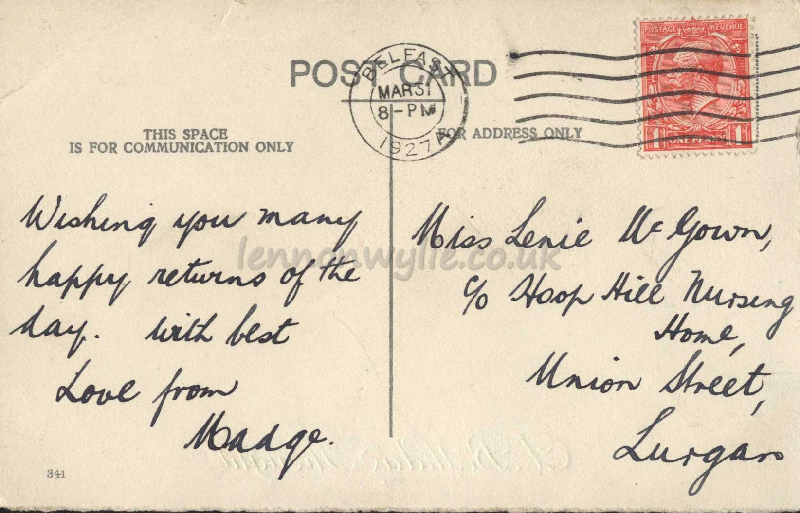 POST CARD
BELFAST
MAR 31
8-PM
1927
POSTAGE REVENUE
1 ONE PENNY 1
THIS SPACE
IS FOR COMMUNICATION ONLY
FOR ADDRESS ONLY
Wishing you many
happy returns of the
day. With best
Love from
Madge.
Miss Lenie McGown,
c/o Hoop Hill Nursing
Home,
Union Street,
Lurgan
lennonwylie.co.uk
341